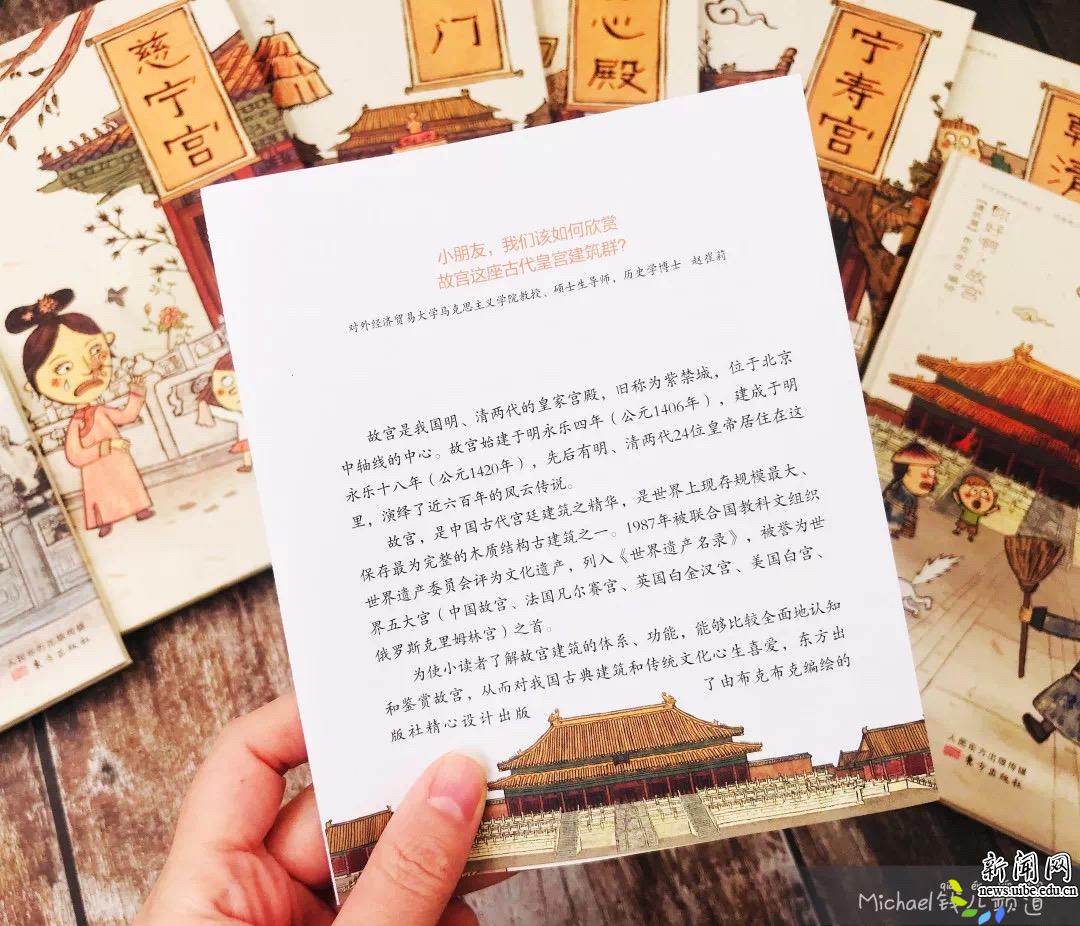 慈宁宫
门
心殿
宁寿宫
朝
清
你好啊,故宫
小朋友，我们该如何欣赏
故宫这座古代皇宫建筑群？
对外经济贸易大学马克思主义学院教授、硕士生导师，历史学博士 赵崔莉
故宫是我国明、清两代的皇家宫殿，旧称为紫禁城，位于北京
中轴线的中心。故宫始建于明永乐四年（公元1406年），建成于明
永乐十八年（公元1420年），先后有明、清两代24位皇帝居住在这
里，演绎了近六百年的风云传说。
故宫，是中国古代宫廷建筑之精华，是世界上现存规模最大、
保存最为完整的木质结构古建筑之一。1987年被联合国教科文组织
世界遗产委员会评为文化遗产，列入《世界遗产名录》，被誉为世
界五大宫（中国故宫、法国凡尔赛宫、英国白金汉宫、美国白宫、
俄罗斯克里姆林宫）之首。
为使小读者了解故宫建筑的体系、功能，能够比较全面地认知
和鉴赏故宫，从而对我国古典建筑和传统文化心生喜爱，东方出
版社精心设计出版 了由布克布克编绘的
人民东方出版传媒
东方出版社
人民东方出版传媒
东方出版社
新闻网
news.uibe.edu.cn
Michael钱儿频道